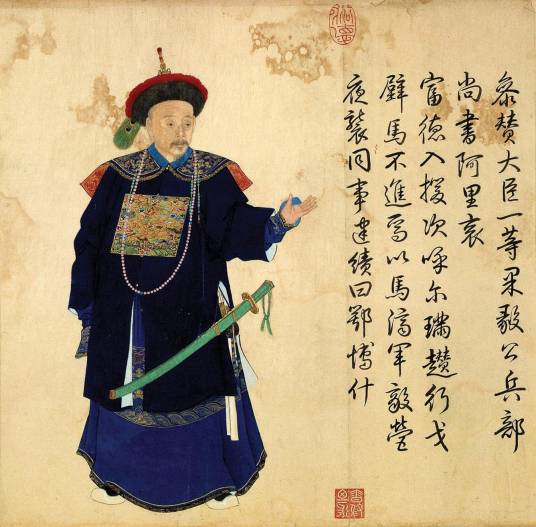 叅賛大臣一等果毅公兵部
尚書阿里袞
富德入援次呼尔璊趲行戈
壁馬不進焉以馬濟軍敵營
夜襲同事建績曰鄂博什